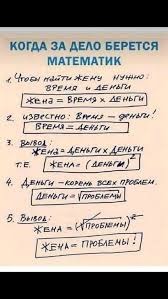 КОГДА ЗА ДЕЛО БЕРЕТСЯ
МАТЕМАТИК
1. Чтобы найти жену нужно:
время и деньги
жена = время х деньги
2. известно: время – деньги!
время = деньги
3. вывод:
жена = деньги х деньги
т.е. жена = (деньги)²
4. Деньги – корень всех проблем.
деньги = √проблемы
5. вывод:
жена = (√проблемы)²
жена = проблемы!